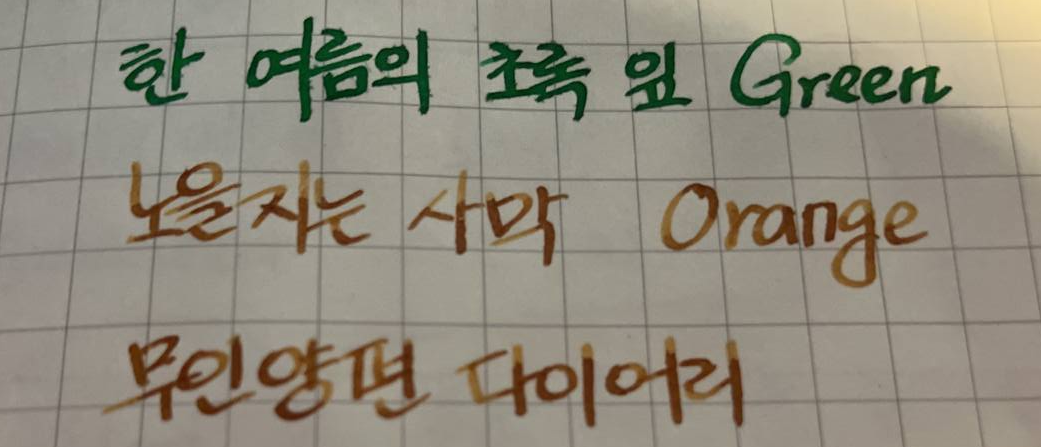 한 여름의 초록 잎 Green
노을지는 사막 Orange
무인양편 다이어리